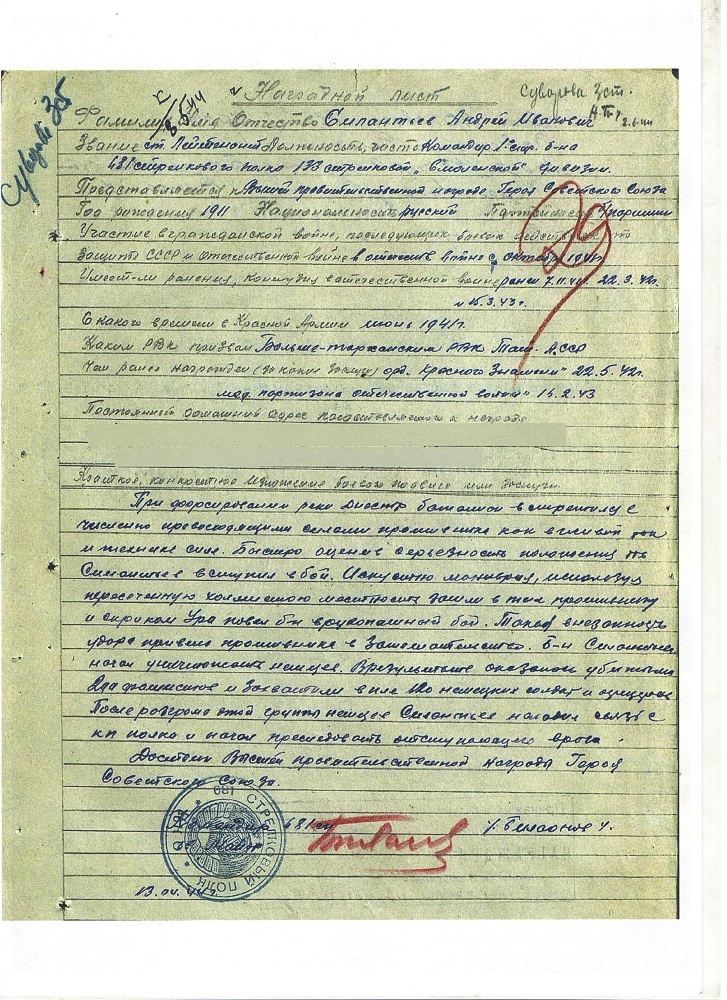 Наградной лист
Суворова 3 ст.
Суворов 3б
8.5.44
Фамилия Имя Отчество Силантьев Андрей Иванович
Звание ст. Лейтенант Должность, часть Командир 1 стр. б-на
681 стрелкового полка 133 стрелковой "Смоленской" дивизии.
Представляется к Высшей правительственной награде Героя Советского Союза
Год рождения 1911 Национальность русский Партийность
Участие в гражданской войне, последующих боевых действиях по
защите СССР и отечественной войне в отечеств. войне с октября 1941г
Имеет-ли ранения, контузии в отечественной войне ранен 7.11.41. 22.3.42г.
и 15.3.43г.
С какого времени в Красной Армии июнь 1941г.
Каким РВК призван Больше-тарханским РВК Тат. АССР
Чем ранее награжден (за какие заслуги) орд. "Красного Знамени" 22.5.42г.
мед. партизана отечественной войны" 15.2.43
Постоянный домашний адрес представляемого к награде
Краткое, конкретное изложение боевого подвига или заслуги
При форсировании реки Днестр батальон встретился с
численно превосходящими силами противника как в живой так
и технике силе. Быстро оценив серьезность положения тов
Силантьев вступил в бой. Искусно маневрируя, используя
пересеченную холмистую местность зашел в тыл противнику
и с криком Ура повел б-н в рукопашный бой. Такая внезапность
удара привела противника в замешательство. Б-н Силантьева
начал уничтожать немцев. В результате оказалось убитыми
фашистов и захватили в плен немецких солдат и офицеров
После разгрома этой группы немцев Силантьев наладил связь с
кп полка и начал преследовать отступающего врага.
Достоин Высшей правительственной награды Героя
Советского Союза.
Командир 681 сп
681 СТРЕЛКОВЫЙ ПОЛК
13.04.44г.